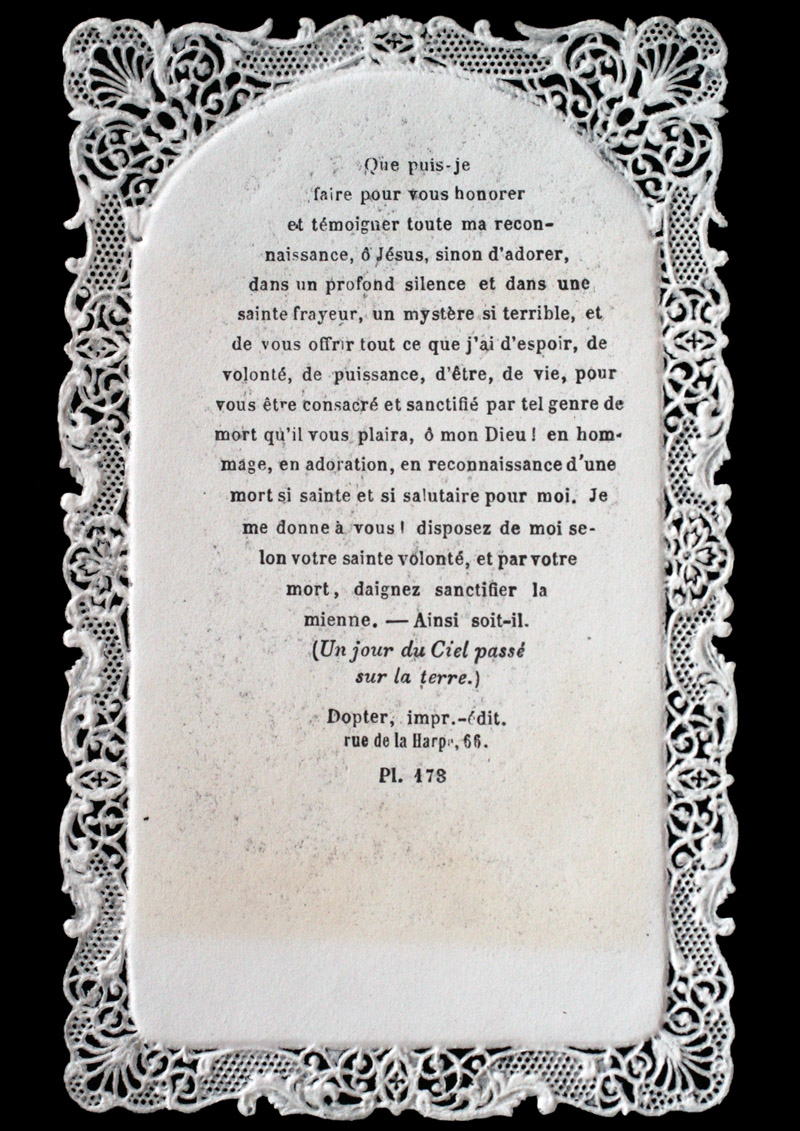 Que puis-je
faire pour vous honorer
et témoigner toute ma recon-
naissance, ô Jésus, sinon d'adorer,
dans un profond silence et dans une
sainte frayeur, un mystère si terrible, et
de vous offrir tout ce que j'ai d'espoir, de
volonté, de puissance, d'être, de vie, pour
vous être consacré et sanctifié par tel genre de
mort qu'il vous plaira, ô mon Dieu! en hom-
mage, en adoration, en reconnaissance d'une
mort si sainte et si salutaire pour moi. Je
me donne à vous! disposez de moi se-
lon votre sainte volonté, et par votre
mort, daignez sanctifier la
mienne. — Ainsi soit-il.
(Un jour du Ciel passé
sur la terre.)
Dopter, impr.-édit.
rue de la Harpe, 66.
Pl. 178